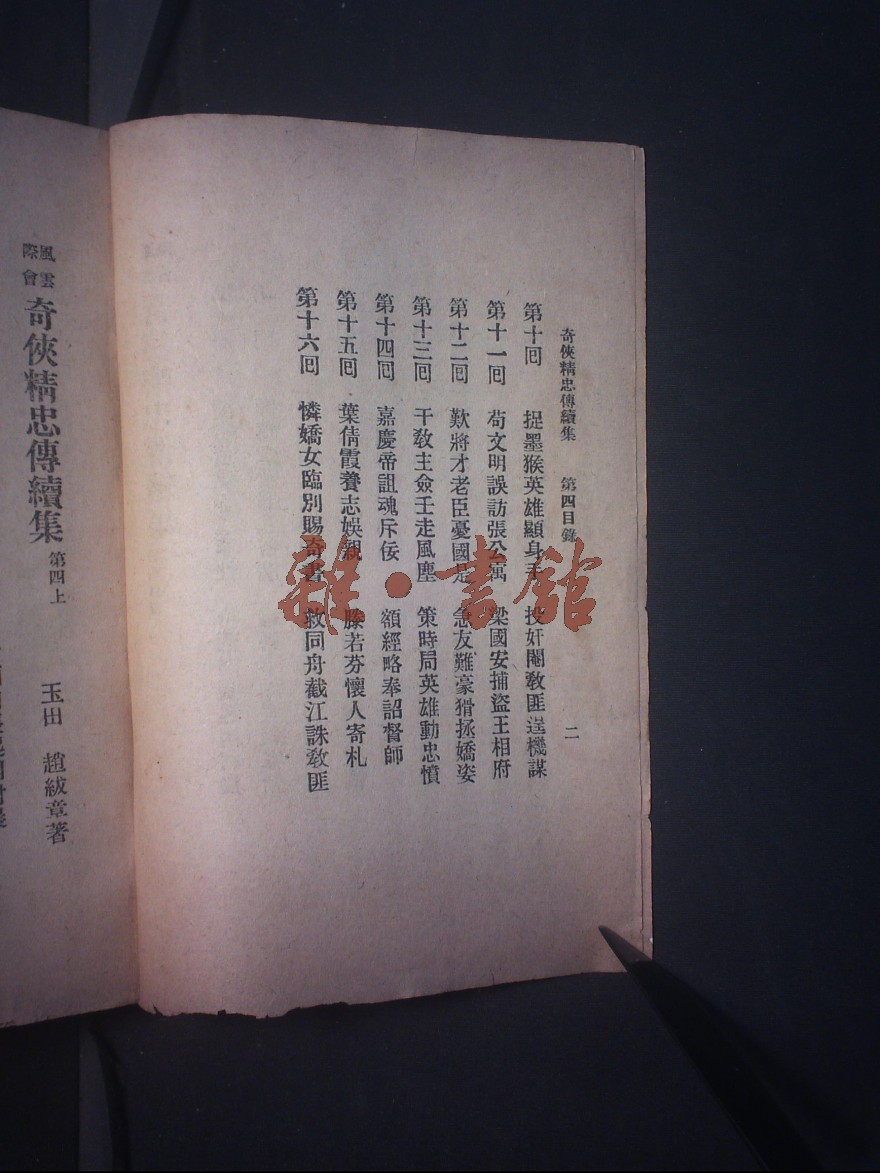 奇俠精忠傳續集 第四目錄 二
第十回 捉墨猴英雄顯身手 投奸閹教匪逞機謀
第十一回 苟文明誤訪張公寓 梁國安捕盜王相府
第十二回 歎將才老臣憂國是 急友難豪猾拯嬌姿
第十三回 干教主僉壬走風塵 策時局英雄動忠憤
第十四回 嘉慶帝詛魂斥佞 額經略奉詔督師
第十五回 葉倩霞養志娛親 滕若芬懷人寄札
第十六回 憐嬌女臨別賜奇書 救同舟截江誅教匪
風雲際會 奇俠精忠傳續集 第四上
玉田 趙紱章著
雜·書館